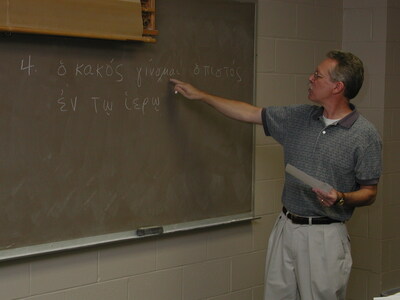 4. ὁ κακός γίνομαι ὁ πιστός
ἐν τῳ ἱερῳ